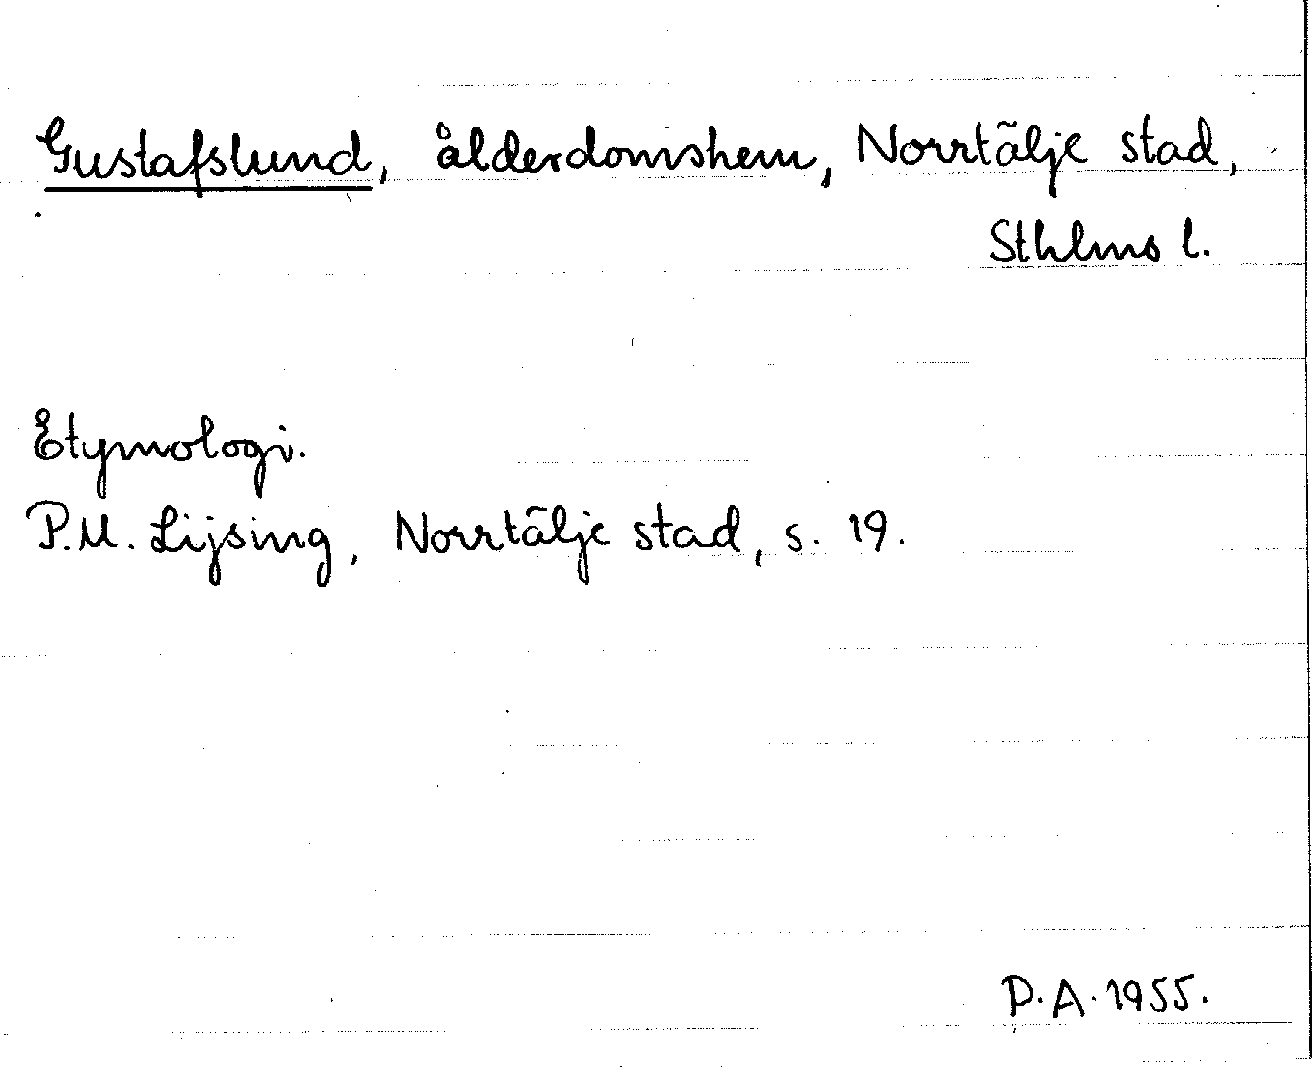 Gustafslund, ålderdomshem, Norrtälje stad,
Sthlms l.
Etymologi.
P.M. Lijsing, Norrtälje stad, s. 19.
P.A. 1955.